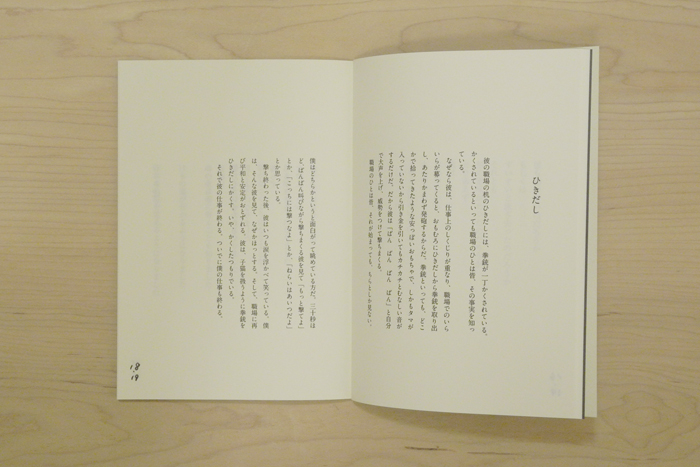 ひきだし
彼の職場の机のひきだしには、拳銃が一丁かくされている。
かくされているといっても職場のひとは皆、その事実を知っ
ている。
なぜなら彼は、仕事上のしくじりが重なり、職場でのいら
いらが募ってくると、おもむろにひきだしから拳銃を取り出
し、あたりかまわず発砲するからだ。拳銃といっても、どこ
かで拾ってきたような安っぽいおもちゃで、しかもタマが
入っていないから引き金を引いてもカチカチとむなしい音が
するだけだ。だから彼は「ばん ばん ばん ばん」と自分
で大声を上げ、威勢をつけて撃ちまくる。
職場のひとは皆、それが始まっても、ちらとしか見ない。
僕はどちらかというと面白がって眺めている方だ。三十秒ほ
ど、ばんばん叫びながら撃ちまくる彼を見て「もっと撃てよ」
とか、「こっちには撃つなよ」とか、「ねらいはあいつだよ」
とか思っている。
撃ち終わった後、彼はいつも涙を浮かべて笑っている。僕
は、そんな彼を見て、なぜかほっとする。そして、職場に再
び平和と安定がおとずれる。彼は、子猫を扱うように拳銃を
ひきだしにかくす。いや、かくしたつもりでいる。
それで彼の仕事が終わる。ついでに僕の仕事も終わる。
18
19